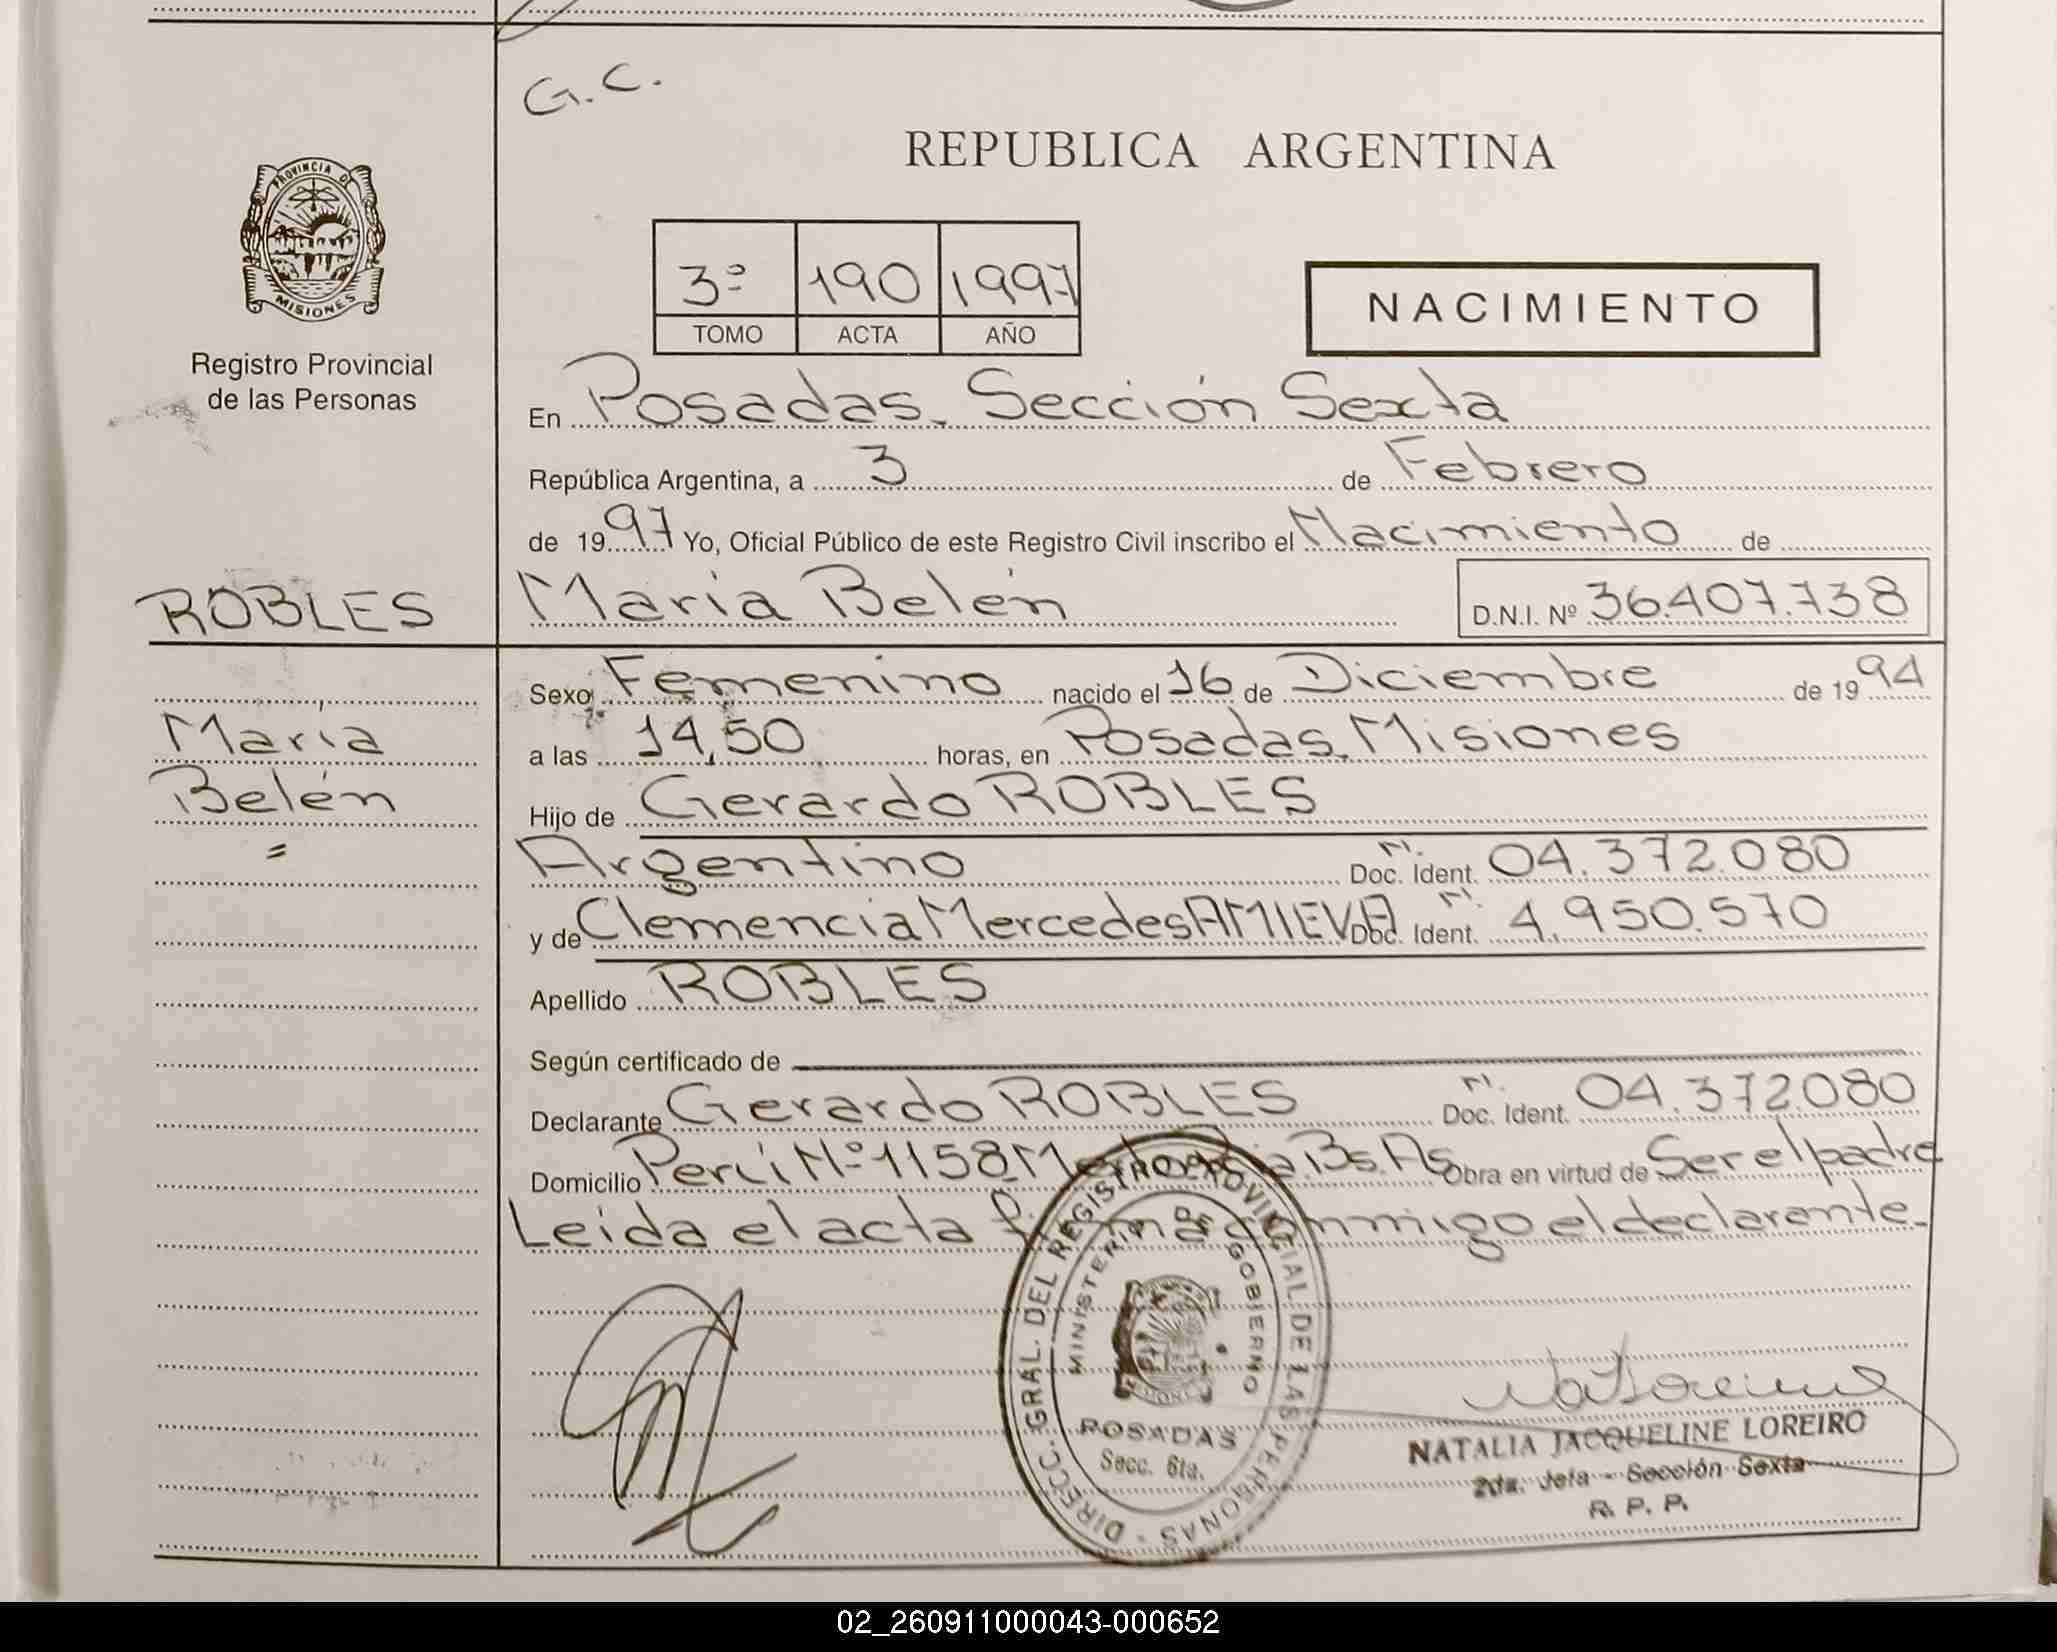 G.C.
REPUBLICA ARGENTINA
PROVINCIA DE
MISIONES
3º 190 1997
TOMO ACTA AÑO
NACIMIENTO
Registro Provincial
de las Personas
En Posadas. Sección Sexta
República Argentina, a 3 de Febrero
de 1997 Yo, Oficial Público de este Registro Civil inscribo el Nacimiento de
ROBLES
María Belén D.N.I. Nº 36.407.738
Sexo Femenino nacido el 16 de Diciembre de 1994
María
a las 14,50 horas, en Posadas. Misiones
Belén
Hijo de Gerardo ROBLES
=
Argentino Doc. Ident. 04.372.080
y de Clemencia Mercedes AMIEVA Doc. Ident. 4.950.570
Apellido ROBLES
Según certificado de
Declarante Gerardo ROBLES Doc. Ident. 04.372.080
Domicilio Perú Nº 1158 Bs. As. Obra en virtud de Ser el padre
Leída el acta firma conmmigo el declarante.
DIRECC. GRAL. DEL REGISTRO PROVINCIAL DE LAS PERSONAS
MINISTERIO DE GOBIERNO
MISIONES
POSADAS
Secc. 6ta.
NatLoreiro
NATALIA JACQUELINE LOREIRO
2da. Jefa - Sección Sexta
R. P. P.
02_260911000043-000652